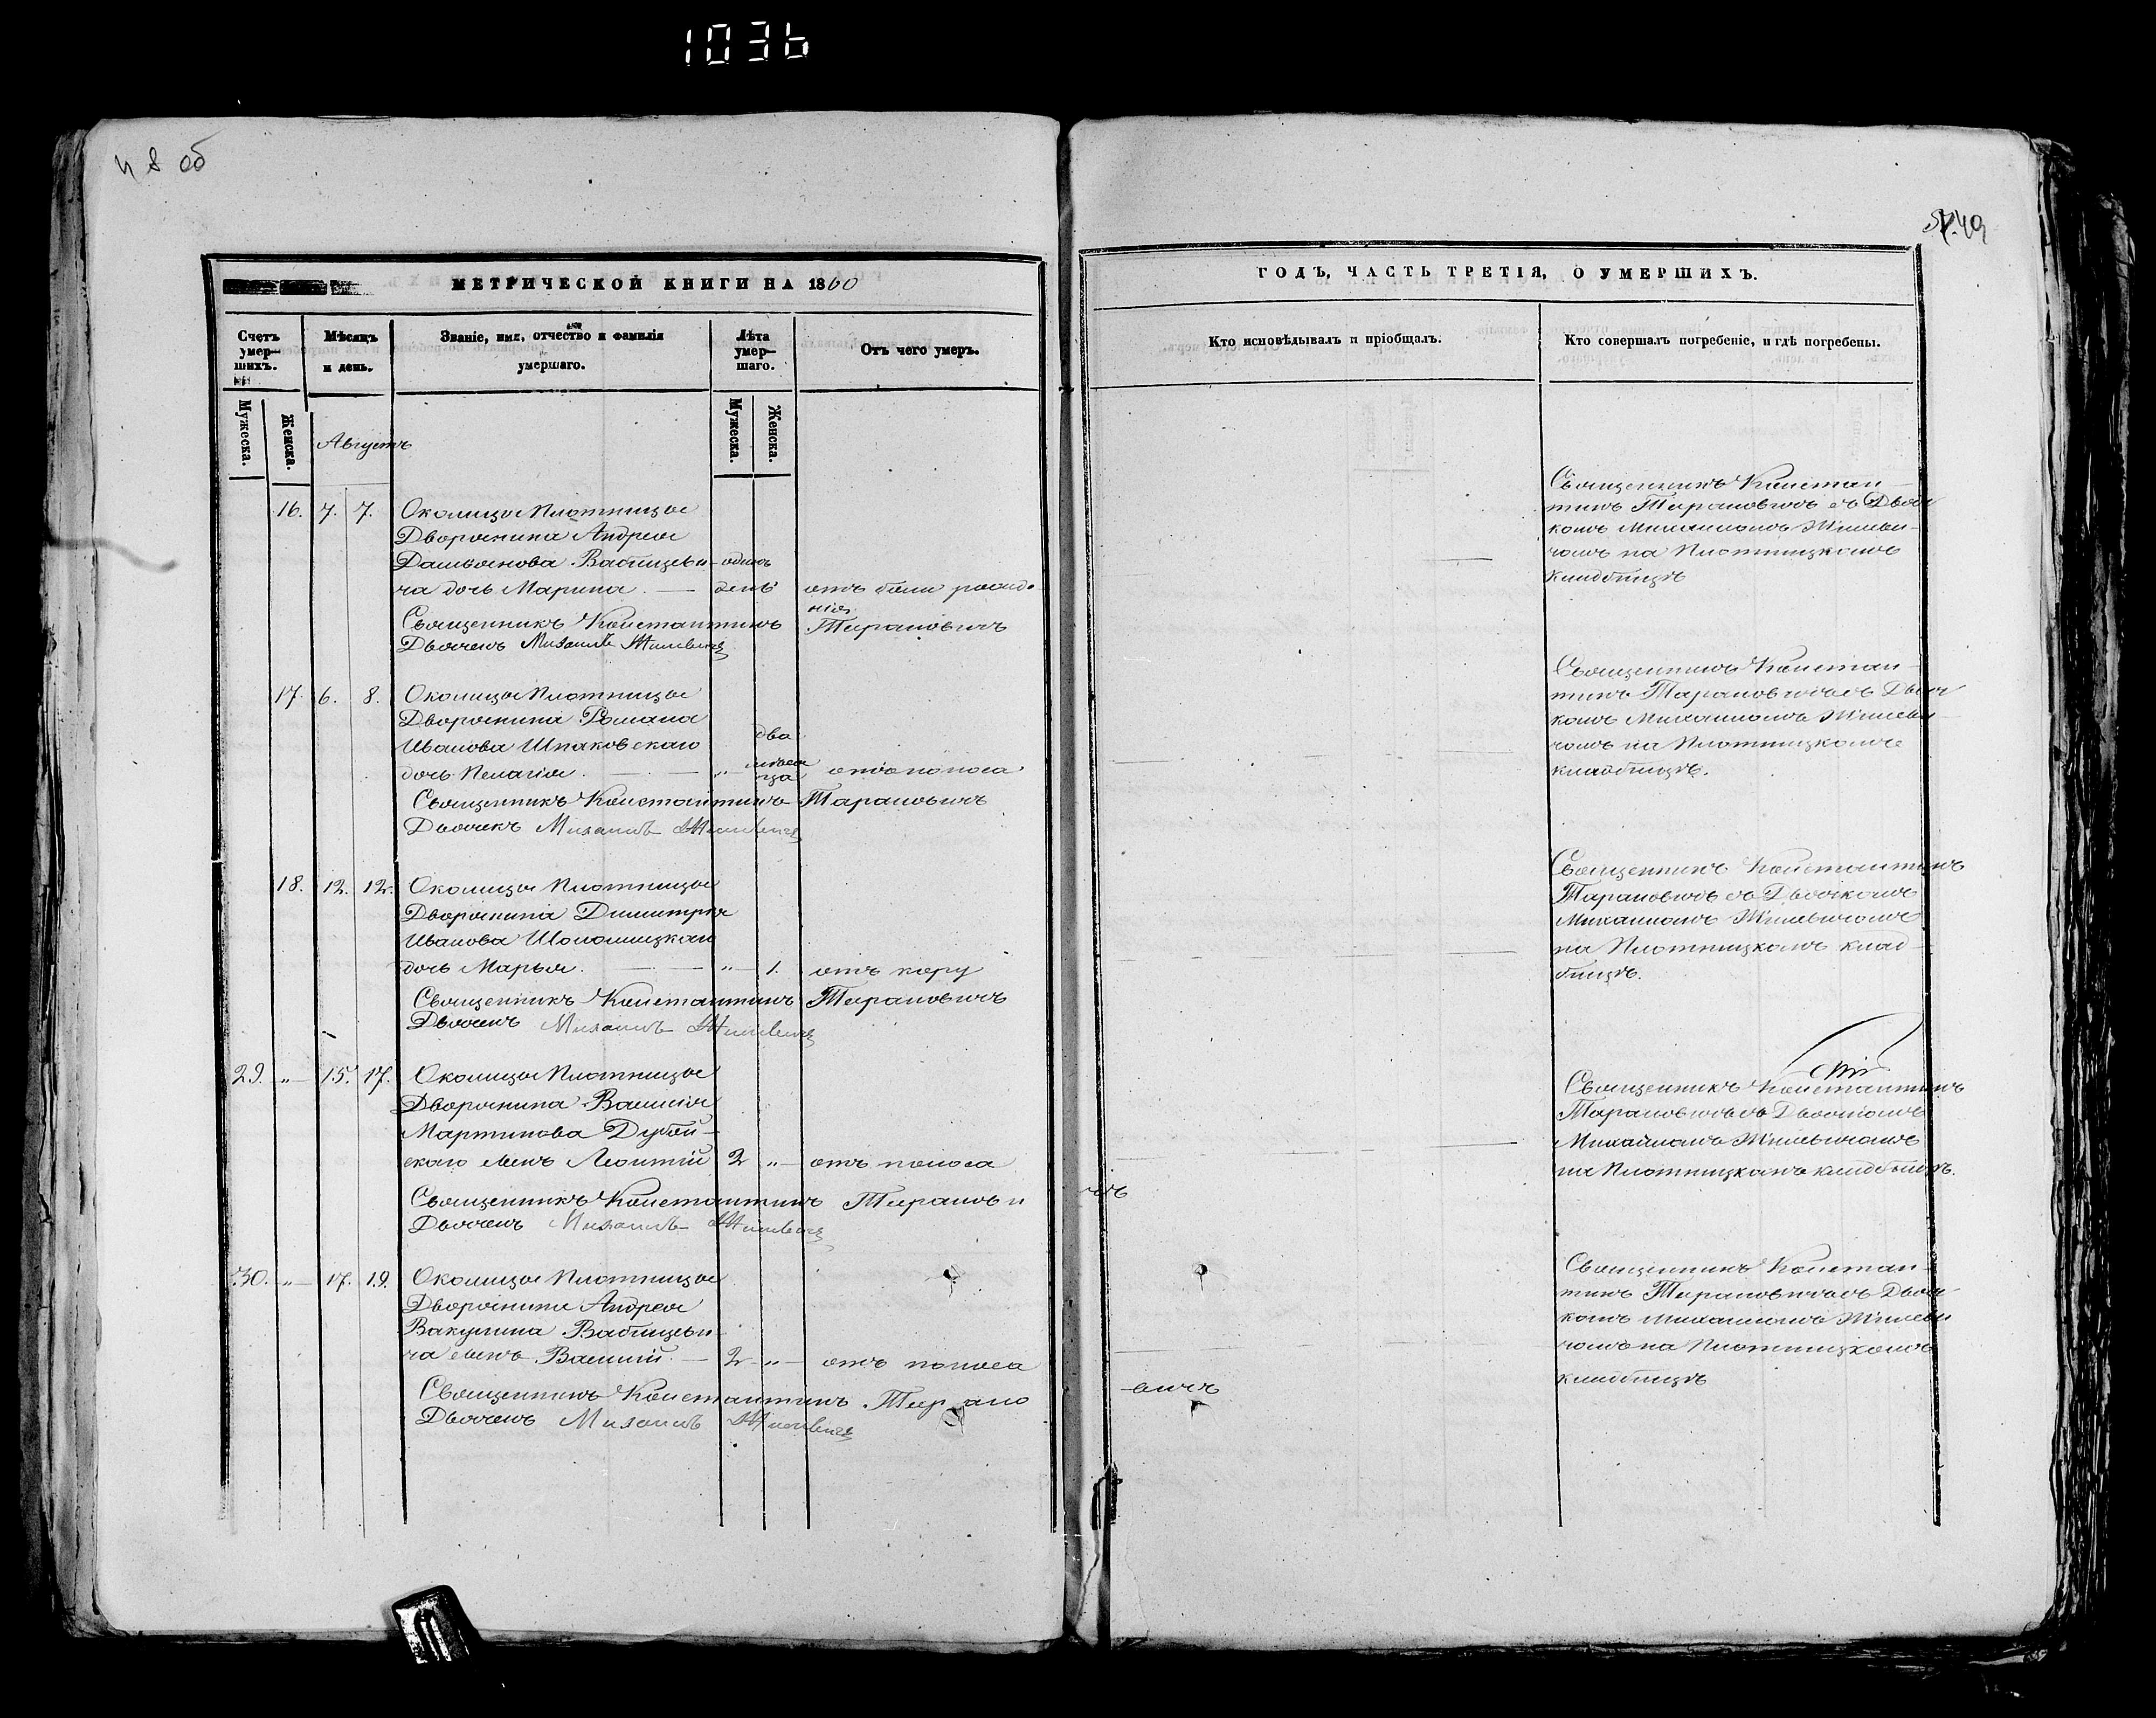 1036
об
49
МЕТРИЧЕСКОЙ КНИГИ НА 1860
Счетъ умер-шихъ.
Мѣсяцъ и день.
Званіе, имя, отчество и фамилія умершаго.
Лѣта умер-шаго.
Отъ чего умеръ.
Мужеска.
Женска.
Августъ
Мужеска.
Женска.
16. 7. 7. Околицы Плотницы
Дворянина Андрея
Вабищеви- одинъ
ча дочь Марина. — день отъ рожде-
нія
Священникъ Константинъ Тарановичъ
Дьячекъ Михаилъ Жилевичъ
17. 6. 8. Околицы Плотницы
Дворянина Романа
Иванова Шпаковскаго два
дочь Пелагія. — „ мѣся
ца отъ поноса
Священникъ Константинъ Тарановичъ
Дьячекъ Михаилъ Жилевичъ
18. 12. 12. Околицы Плотницы
Дворянина Димитрія
Иванова Шоломицкаго
дочь Марья. — „ 1. отъ кору
Священникъ Константинъ Тарановичъ
Дьячекъ Михаилъ Жилевичъ
29. „ 15. 17. Околицы Плотницы
Дворянина Василія
Мартинова Дубой-
скаго сынъ Леонтій 2 „ отъ поноса
Священникъ Константинъ Тарановичъ
Дьячекъ Михаилъ Жилевичъ
30. „ 17. 19. Околицы Плотницы
Дворянина Андрея
Вакулина Вабищеви-
ча сынъ Василій. — 2 „ отъ поноса
Священникъ Константинъ Тарановичъ
Дьячекъ Михаилъ Жилевичъ
ГОДЪ, ЧАСТЬ ТРЕТІЯ, О УМЕРШИХЪ.
Кто исповѣдывалъ и пріобщалъ.
Кто совершалъ погребеніе, и гдѣ погребены.
Священникъ Констан-
тинъ Тарановичъ съ Дьяч
комъ Михаиломъ Жилеви-
чомъ на Плотницкомъ
кладбищѣ
Священникъ Констан-
тинъ Тарановичъ съ Дьяч
комъ Михаиломъ Жилеви-
чомъ на Плотницкомъ
кладбищѣ.
Священникъ Константинъ
Тарановичъ съ Дьячкомъ
Михаиломъ Жилевичомъ
на Плотницкомъ клад-
бищѣ.
Священникъ Константинъ
Тарановичъ съ Дьячкомъ
Михаиломъ Жилевичомъ
на Плотницкомъ кладбищѣ.
Священникъ Констан-
тинъ Тарановичъ съ Дьяч-
комъ Михаиломъ Жилеви
чомъ на Плотницкомъ
кладбищѣ